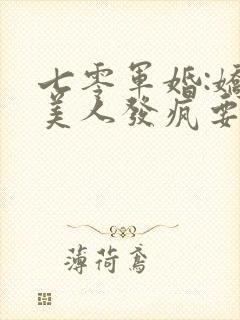 七零軍婚:嬌
美人發瘋要
薄荷鳶